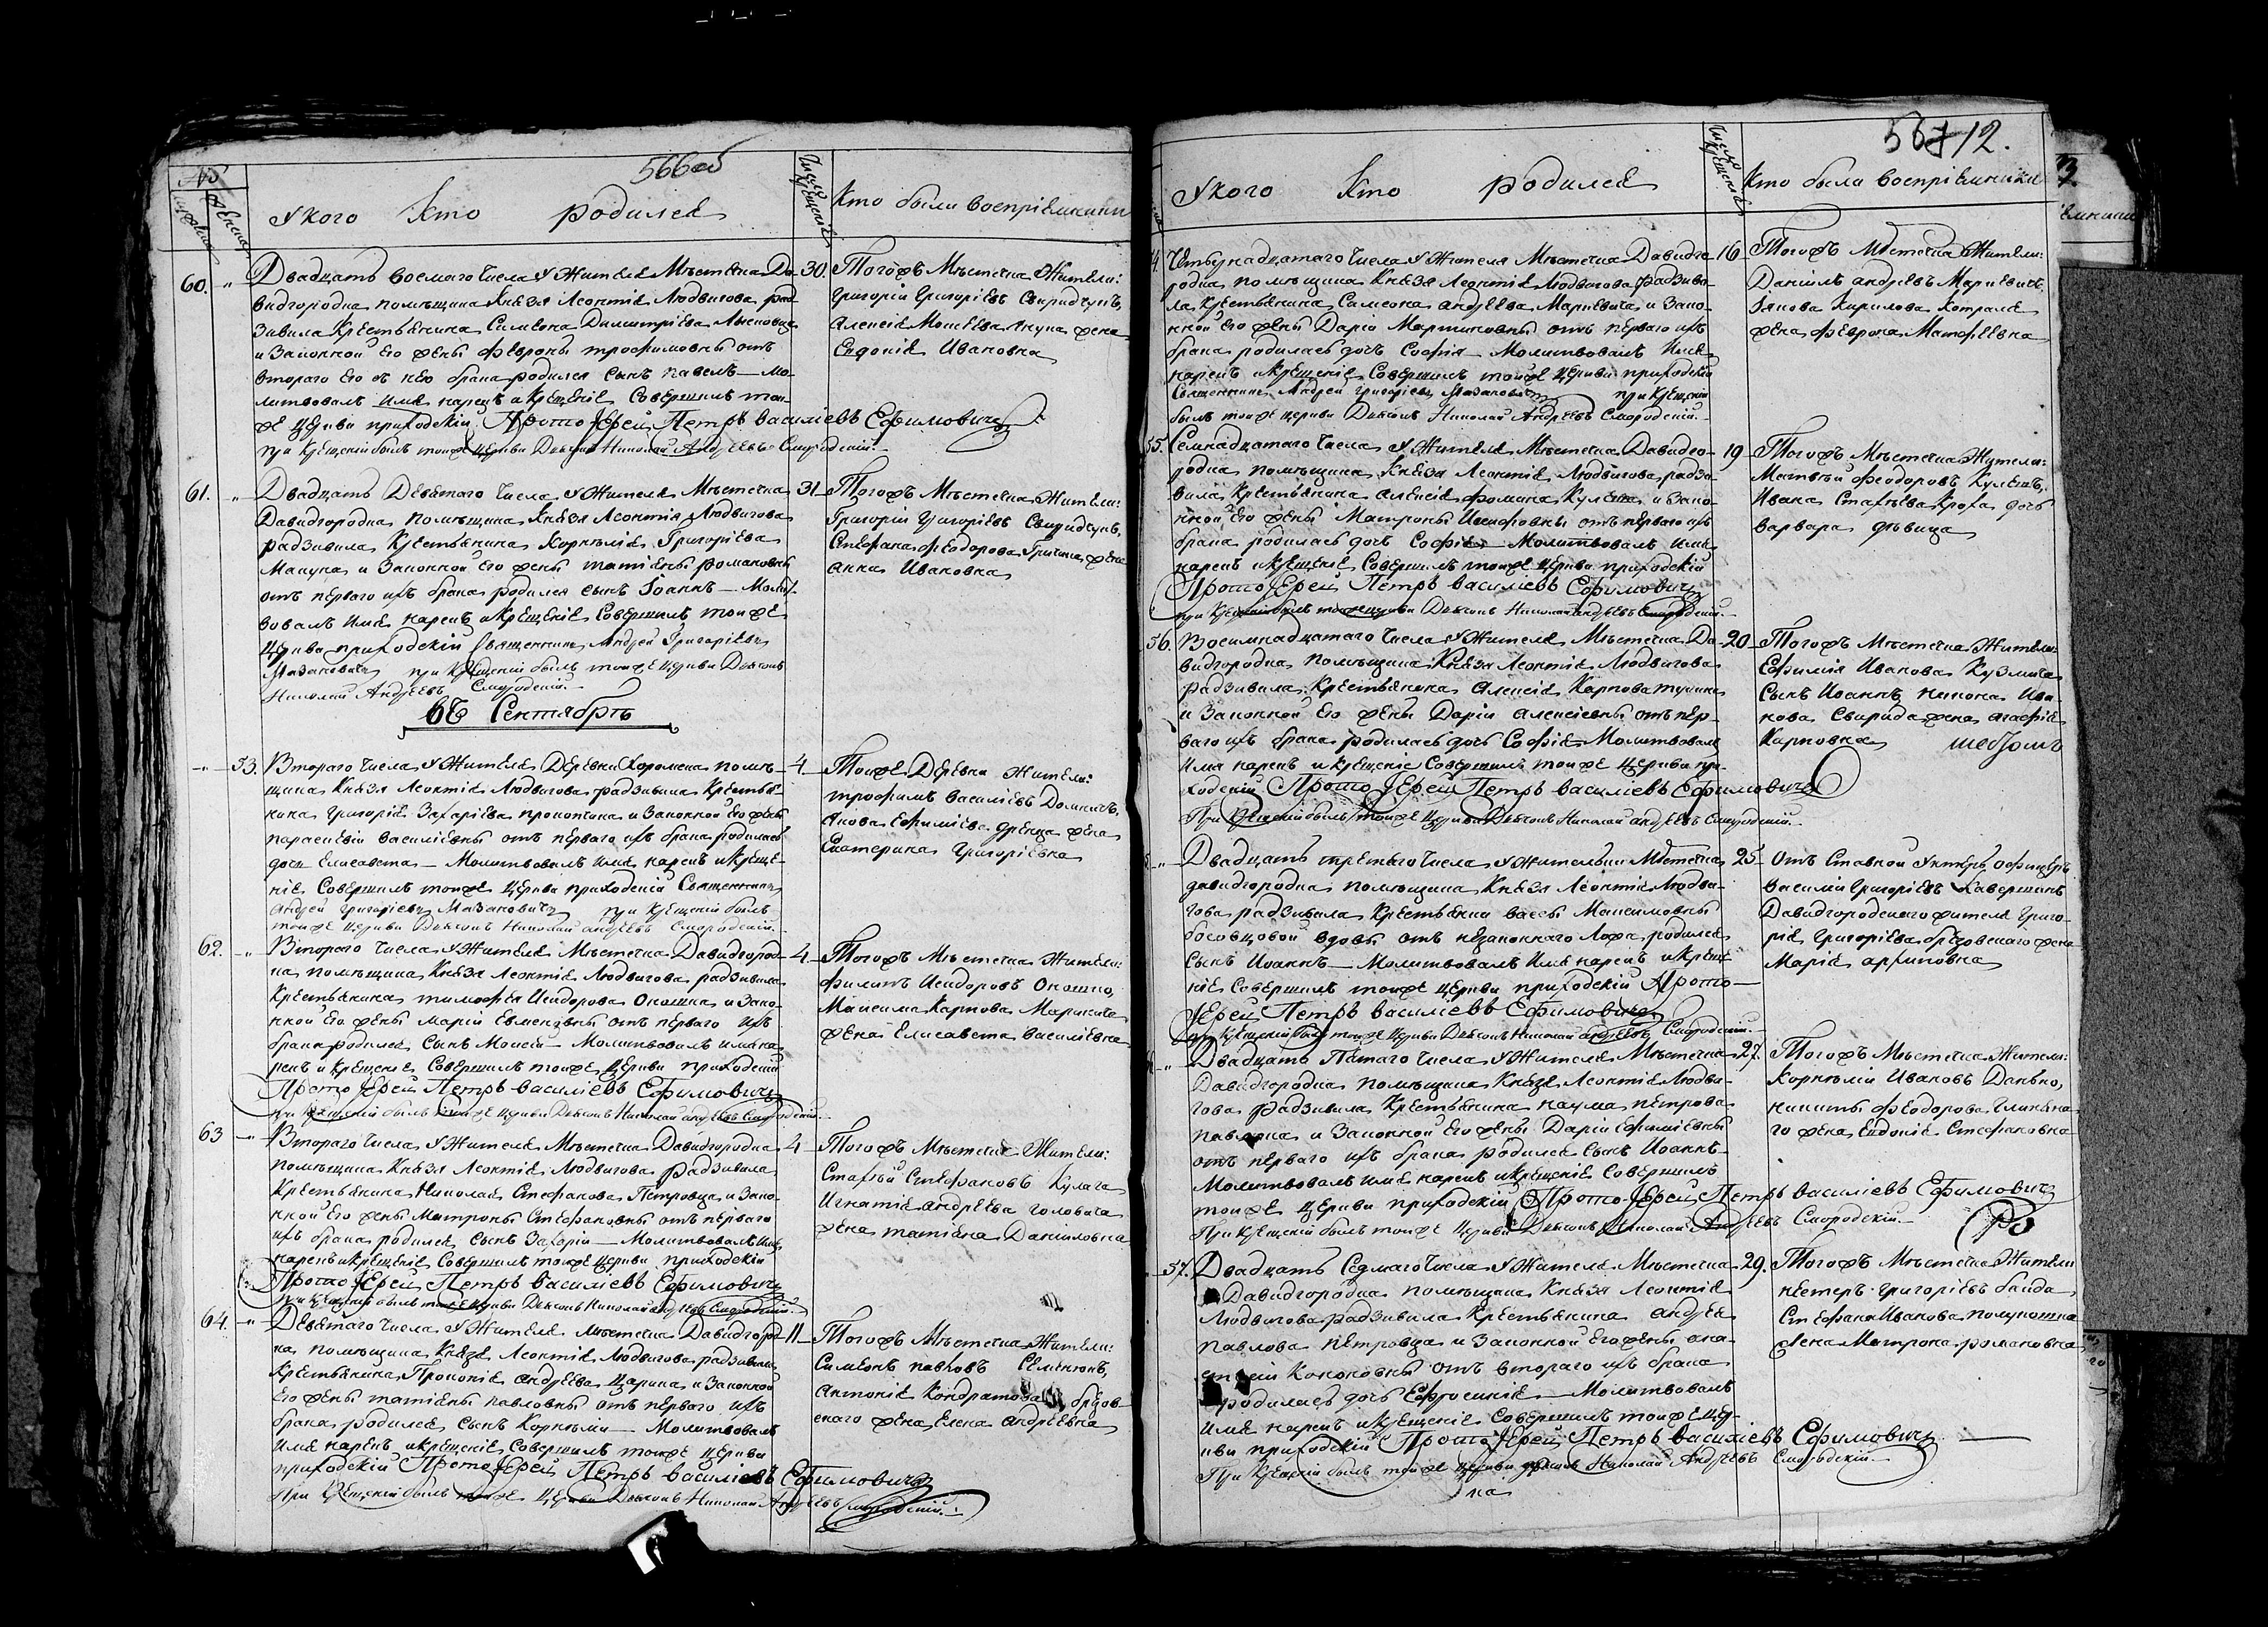 566 об
№
У кого Кто родился
Число крещенія
Кто были воспріемники
60. Двадцать восмаго Числа У Жителя Мѣстечка Да- 30.
видгородка помѣщика Князя Леонтія Людвигова рад-
зивила Крестьянина Симеона Димитріева
и Законной Его жены Февроніи трофимовны отъ
втораго Его съ нею брака родился сынъ павелъ — мо-
литвовалъ имя нарекъ и Крещеніе Совершилъ той-
же Церкви приходскій Прото Іерей Петръ Василіевъ Ефимовичъ
при Крещеніи былъ тойже Церкви Дьяконъ Николай Андреевъ Смородскій.
Тогожъ Мѣстечка Жители:
Григорій Григоріевъ Свиридчукъ,
Алексія Моисеева жена
Евдокія Ивановна
61. Двадцать Девятаго Числа У Жителя Мѣстечка 31.
Давидгородка помѣщика Князя Леонтія Людвигова
радзивила Крестьянина Корнилія Григоріева
и Законной Его жены татіяны романовны
отъ перваго ихъ брака родился сынъ Іоаннъ — Молит-
вовалъ Имя нарекъ и Крещеніе Совершилъ тойже
Церкви приходскій Священникъ Андрей Григоріевъ
Мазановичъ при Крещеніи былъ тойже Церкви Дьяконъ
Николай Андреевъ Смородскій.
Тогожъ Мѣстечка Жители:
Григорій Григоріевъ Свиридчукъ,
Стефана Феодорова жена
анна Ивановна
въ Сентябрѣ
53. Втораго Числа У Жителя Деревни Хоромска помѣ- 4.
щика Князя Леонтія Людвигова радзивила Крестья-
нина Григорія Захаріева и Законной Его жены
параскевіи Василіевны отъ перваго ихъ брака родилась
дочь Елисавета — Молитвовалъ Имя нарекъ и Креще-
ніе Совершилъ тойже Церкви приходскій Священникъ
Андрей Григоріевъ Мазановичъ при Крещеніи былъ
тойже Церкви Дьяконъ Николай Андреевъ Смородскій.
Тойже Деревни Жители:
трофимъ Василіевъ
Якова Ефиміева жена
Екатерина Григоріевна
62. Втораго Числа У Жителя Мѣстечка Давидгород- 4.
ка помѣщика Князя Леонтія Людвигова радзивила
Крестьянина тимофея Исидорова и Зако-
нной Его жены Маріи отъ перваго ихъ
брака родился Сынъ Моисей — Молитвовалъ имя на-
рекъ и Крещеніе Совершилъ тойже Церкви приходскій
Прото Іерей Петръ Василіевъ Ефимовичъ
при Крещеніи былъ тойже Церкви Дьяконъ Николай Андреевъ Смородскій.
Тогожъ Мѣстечка Жители:
филипъ Исидоровъ
Максима Карпова
жена Елисавета Василіевна
63 Втораго Числа У Жителя Мѣстечка Давидгородка 4
Помѣщика Князя Леонтія Людвигова радзивила
Крестьянина Николая Стефанова Петровца и Зако-
нной Его жены Матроны Стефановны отъ перваго
ихъ брака родился сынъ Захарій — Молитвовалъ Имя
нарекъ и Крещеніе Совершилъ тойже Церкви приходскій
Прото Іерей Петръ Василіевъ Ефимовичъ
при Крещеніи былъ тойже Церкви Дьяконъ Николай Андреевъ Смородскій.
Тогожъ Мѣстечка Жители:
Стефановъ Кулага
Игнатія андреева головача
жена татіяна Даніиловна
64. Девятаго Числа У Жителя Мѣстечка Давидгород- 11
ка помѣщика Князя Леонтія Людвигова радзивила
Крестьянина Прокопія андреева Царика и Законной
Его жены татіяны павловны отъ перваго ихъ
брака родился сынъ Корнилій — Молитвовалъ
Имя нарекъ и крещеніе Совершилъ тойже Церкви
приходскій Прото Іерей Петръ Василіевъ Ефимовичъ
При Крещеніи былъ тойже Церкви Дьяконъ Николай Андреевъ Смородскій.
Тогожъ Мѣстечка Жители:
Симеонъ павловъ Семенюкъ,
антонія Кондратова
жена Елена андреевна
567 12.
У кого Кто родился
Число крещенія
Кто были воспріемники
Четырнадцатаго Числа У Жителя Мѣстечка Давидго- 16
родка помѣщика Князя Леонтія Людвигова радзиви-
ла Крестьянина Симеона андреева Марцевича и Зако-
нной Его жены Даріи Мартиновны отъ перваго ихъ
брака родилась дочь Софія — Молитвовалъ Имя
нарекъ и Крещеніе Совершилъ тойже Церкви приходскій
Священникъ Андрей Григоріевъ Мазановичъ при Крещеніи
былъ тойже Церкви Дьяконъ Николай Андреевъ Смородскій.
Тогожъ Мѣстечка Жители:
Даніилъ андреевъ Марцевичъ
Якова Кирилова
жена Феврона Матфеевна
55. Семнадцатаго Числа У Жителя Мѣстечка Давидго- 19
родка помѣщика Князя Леонтія Людвигова радзи-
вила Крестьянина алексія фомина и Зако-
нной Его жены Матроны Іосифовны отъ перваго ихъ
брака родилась дочь Софія — Молитвовалъ имя
нарекъ и Крещеніе Совершилъ тойже Церкви приходскій
Прото Іерей Петръ Василіевъ Ефимовичъ
при Крещеніи былъ тойже Церкви Дьяконъ Николай Андреевъ Смородскій.
Тогожъ Мѣстечка Жители:
Матвѣй Феодоровъ Кулешъ,
Ивана дочь
варвара дѣвица
56. Восимнадцатаго Числа У Жителя Мѣстечка Да- 20
видгородка помѣщика Князя Леонтія Людвигова
радзивила Крестьянина Алексія Карпова
и Законной Его жены Даріи алексіевны отъ пер-
ваго ихъ брака родилась дочь Софія Молитвовалъ
Имя нарекъ и Крещеніе Совершилъ тойже Церкви при-
ходскій Прото Іерей Петръ Василіевъ Ефимовичъ
При Крещеніи былъ тойже Церкви Дьяконъ Николай Андреевъ Смородскій.
Тогожъ Мѣстечка Жители:
Ефимія Иванова Кузмича
Сынъ Иоаннъ Никона Ива-
нова Свирида жена агафія
Карповна
Двадцать третьяго Числа У Жительки Мѣстечка 25
давидгородка помѣщика Князя Леонтія Людви-
гова радзивила Крестьянки вассы Максимовны
вдовы отъ незаконнаго Ложа родился
Сынъ Иоаннъ — Молитвовалъ Имя нарекъ и Креще-
ніе Совершилъ тойже Церкви приходскій Прото-
Іерей Петръ Василіевъ Ефимовичъ
при Крещеніи былъ тойже Церкви Дьяконъ Николай Андреевъ Смородскій.
Отъ Ставной Унтеръ офицеръ
Василій Григоріевъ
Давидгородскаго жителя Григо-
рія Григоріева жена
Марія архиповна
Двадцать Пятаго Числа У Жителя Мѣстечка 27.
Давидгородка помѣщика Князя Леонтія Людви-
гова радзивила Крестьянина наума петрова
и Законной Его жены Даріи Ефиміевны
отъ перваго ихъ брака родился сынъ Иоаннъ
Молитвовалъ имя нарекъ и крещеніе Совершилъ
тойже Церкви приходскій Прото Іерей Петръ Василіевъ Ефимовичъ
При Крещеніи былъ тойже Церкви Дьяконъ Николай Андреевъ Смородскій.
Тогожъ Мѣстечка Жители:
Корнилій Ивановъ
никиты Феодорова
го жена Евдокія Стефановна
57. Двадцать Седмаго Числа У Жителя Мѣстечка 29.
Давидгородка помѣщика Князя Леонтія
Людвигова радзивила Крестьянина андрея
павлова петровца и Законной Его жены ана-
стасіи Кононовны отъ втораго ихъ брака
родилась дочь Ефросинія — Молитвовалъ
Имя нарекъ и Крещеніе Совершилъ тойже Цер-
кви приходскій Прото Іерей Петръ Василіевъ Ефимовичъ
При Крещеніи былъ тойже Церкви Дьяконъ Николай Андреевъ Смородскій
Тогожъ Мѣстечка Жители
нестеръ Григоріевъ
Стефана Иванова
жена Матрона романовна